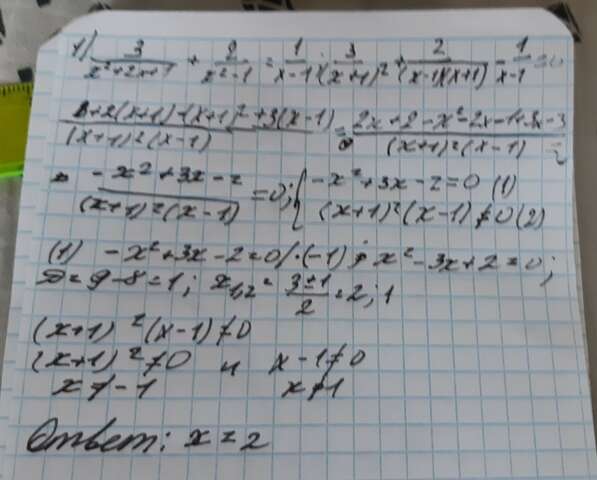 1) 3/(x²+2x+1) + 2/(x²-1) = 1/(x-1); 3/(x+1)² + 2/((x-1)(x+1)) - 1/(x-1) = 0
(2(x+1)-(x+1)²+3(x-1))/((x+1)²(x-1)) = (2x+2-x²-2x-1+3x-3)/((x+1)²(x-1)) =
= (-x²+3x-2)/((x+1)²(x-1)) = 0; { -x²+3x-2=0 (1)
(x+1)²(x-1)≠0 (2)
(1) -x²+3x-2=0/·(-1); x²-3x+2=0;
D=9-8=1; x1,2=(3±1)/2=2;1
(x+1)²(x-1)≠0
(x+1)²≠0 и x-1≠0
x≠-1 x≠1
Ответ: x=2